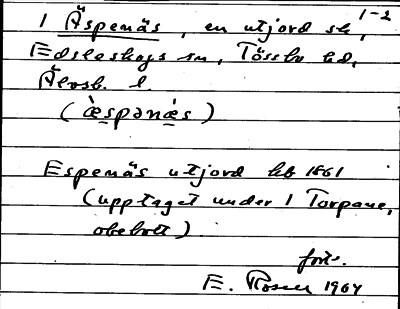 1-2
1 Äspenäs, en utjord sk,
Edsleskogs sn, Tössbo hd,
Älvsb. l.
(àespənáes)
Espenäs utjord hb 1861
(upptaget under 1 Torpane,
obebott)
forts.
E. Rosell 1964